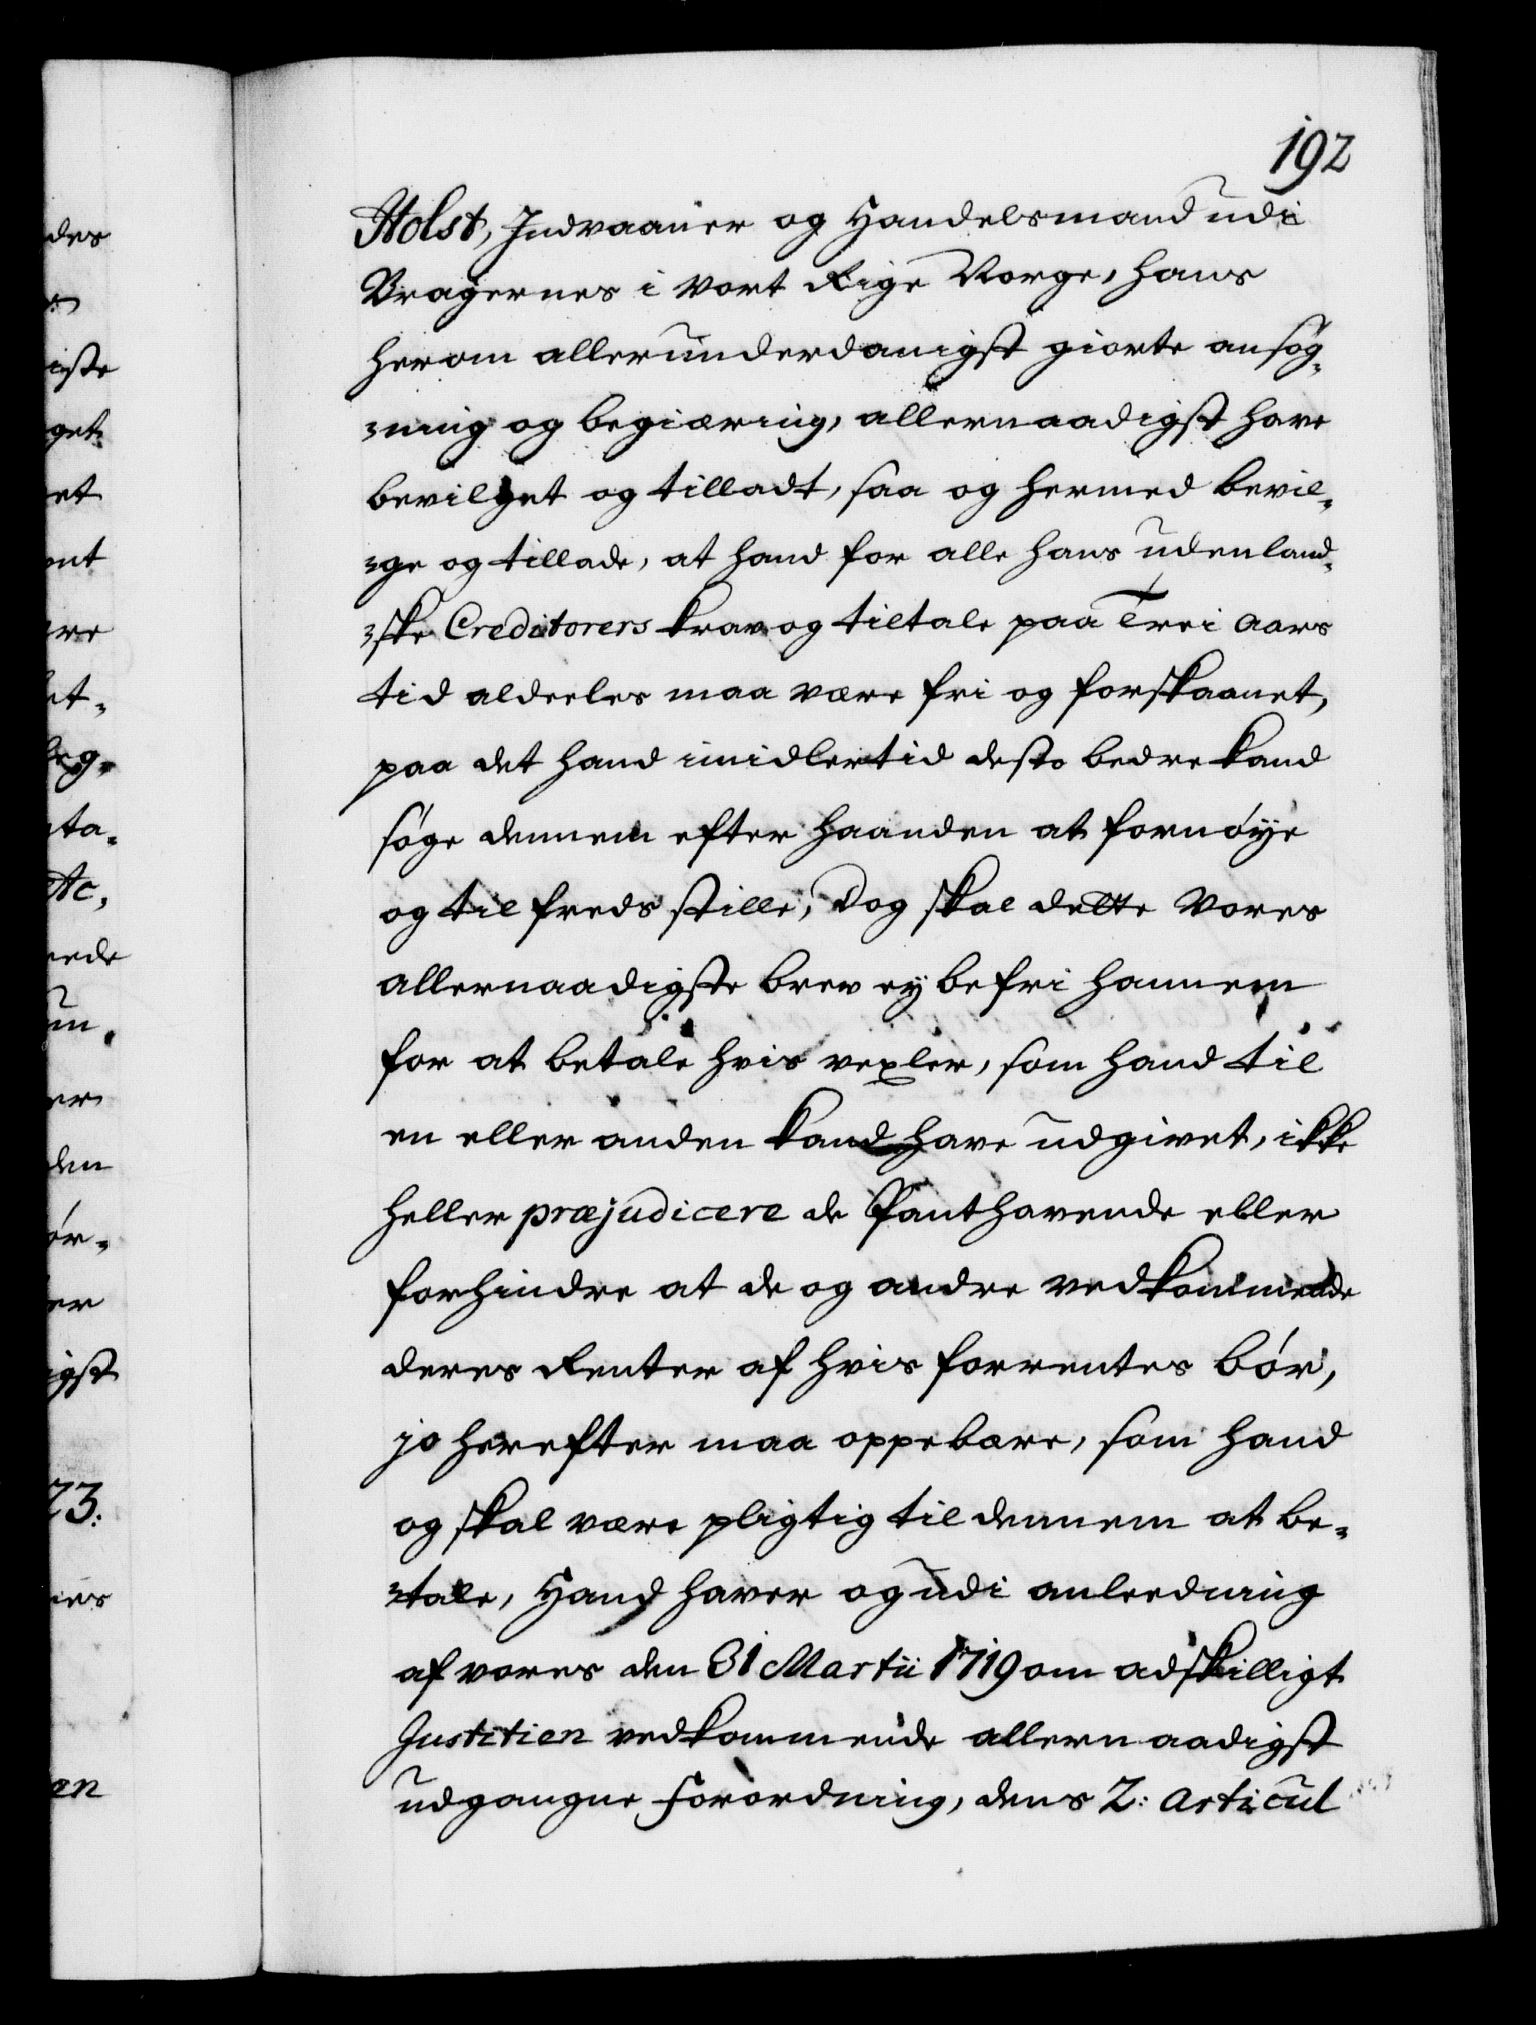 192
Holst, Indvaaner og Handelsmand udi
Bragernes i Vort Rige Norge, hans
herom allerunderdanigst giorte ansøg-
-ning og begiæring, allernaadigst have
bevilget og tilladt, saa og hermed bevil-
-ge og tillade, at hand for alle hans udenland-
-ske Creditorers krav og tiltale paa Trei Aars
tid aldeeles maa være fri og forskaanet,
paa det hand imidlertid desto bedre kand
søge dennem efter haanden at fornøye
og tilfreds stille, Dog skal dette Vores
allernaadigste brev ey befri hannem
for at betale hvis vexler, som hand til
en eller anden kand have udgivet, ikke
heller præjudicere de Panthavende eller
forhindre at de og andre vedkommende
deres Renter af hvis forrentes bør,
jo herefter maa oppebære, som hand
og skal være pligtig til dennem at be-
-tale, Hand haver og udi anleedning
af vores den 31 Martii 1719 om adskilligt
Justitien vedkommende allernaadigst
udgangne Forordning, dens 2: Articul
des
iste
get
et
ont
ere
et-
beg-
ta-
Ac,
nede
un-
er
den
ør-
er
igst
23:
nes
en